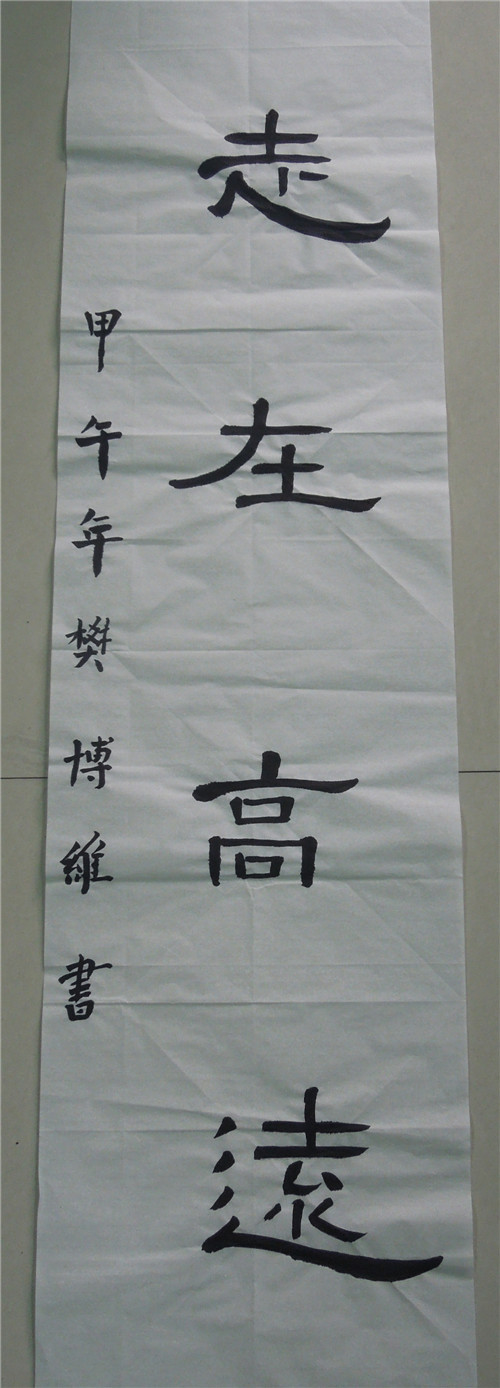 走在高遠
甲午年樊博維書